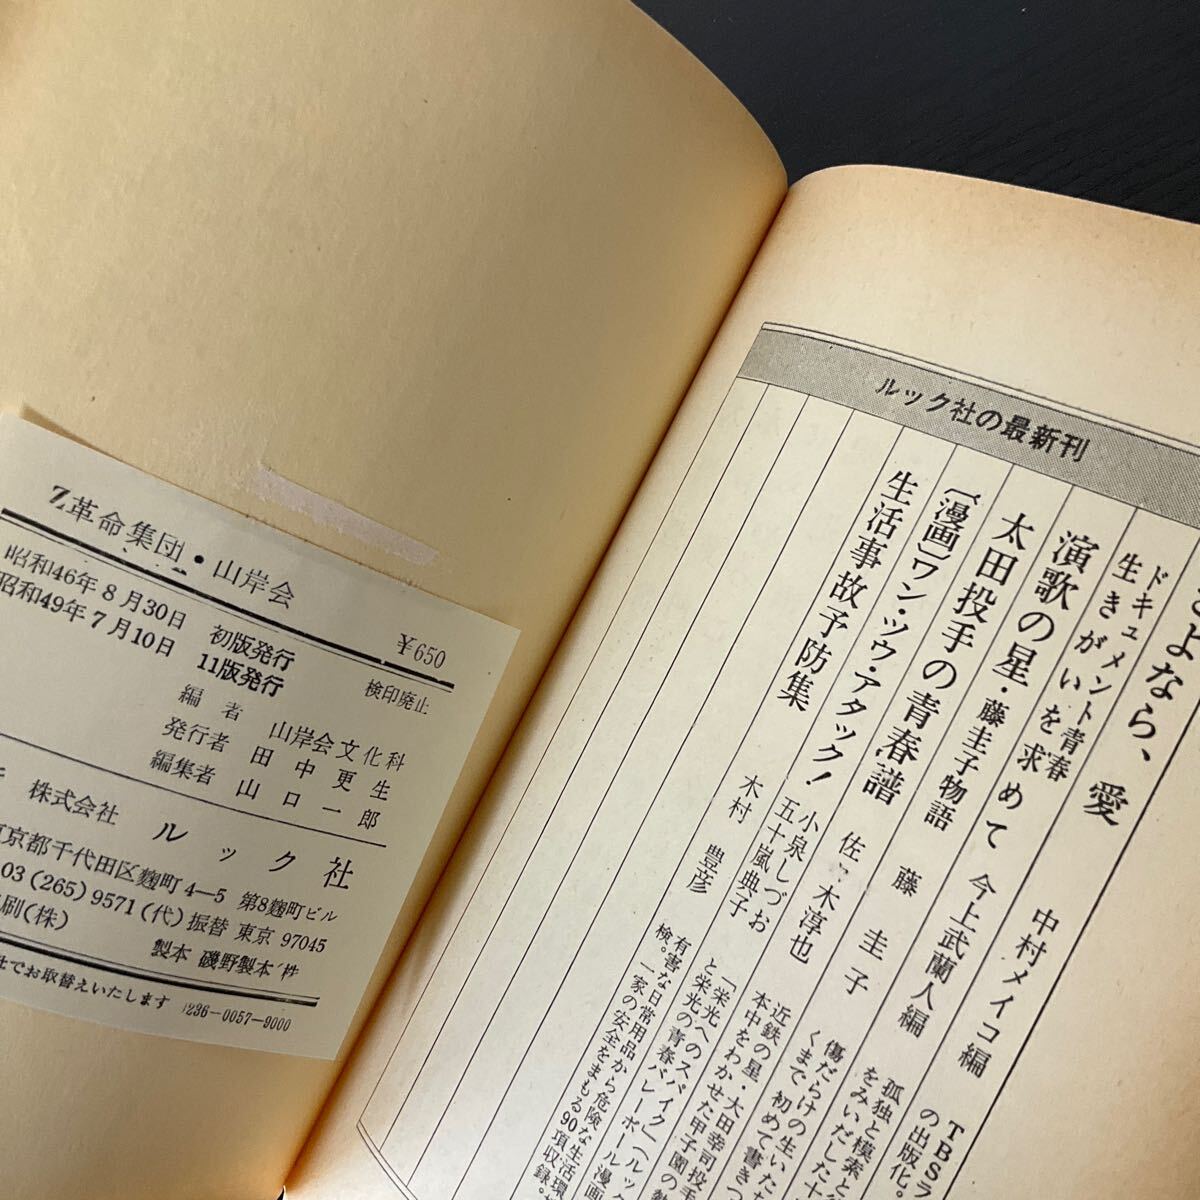 Z革命集団・山岸会
¥650
昭和46年8月30日 初版発行
昭和49年7月10日 11版発行
検印廃止
編者 山岸会文化科
発行者 田中更生
編集者 山口一郎
株式会社 ルック社
京都千代田区麹町4—5 第8麹町ビル
03(265)9571(代) 振替 東京 97045
刷(株)
製本 磯野製本
でお取替えいたします
0057-9000
ルック社の最新刊
よなら、愛 中村メイコ編
TBSラ
の出版化。
ドキュメント青春
生きがいを求めて 今上武蘭人編
孤独と模索と
をみいだした十
演歌の星・藤圭子物語 藤圭子
傷だらけの生いた
くまで初めて書きつ
太田投手の青春譜 佐々木淳也
近鉄の星・太田幸司投手
本中をわかせた甲子園の
〔漫画〕ワン・ツウ・アタック! 小泉しづお
五十嵐典子
「栄光へのスパイク」(ルック
と栄光への青春バレーボール漫画
生活事故予防集 木村 豊彦
有害な日常用品から危険な生活環
検。一家の安全をまもる90項収録。